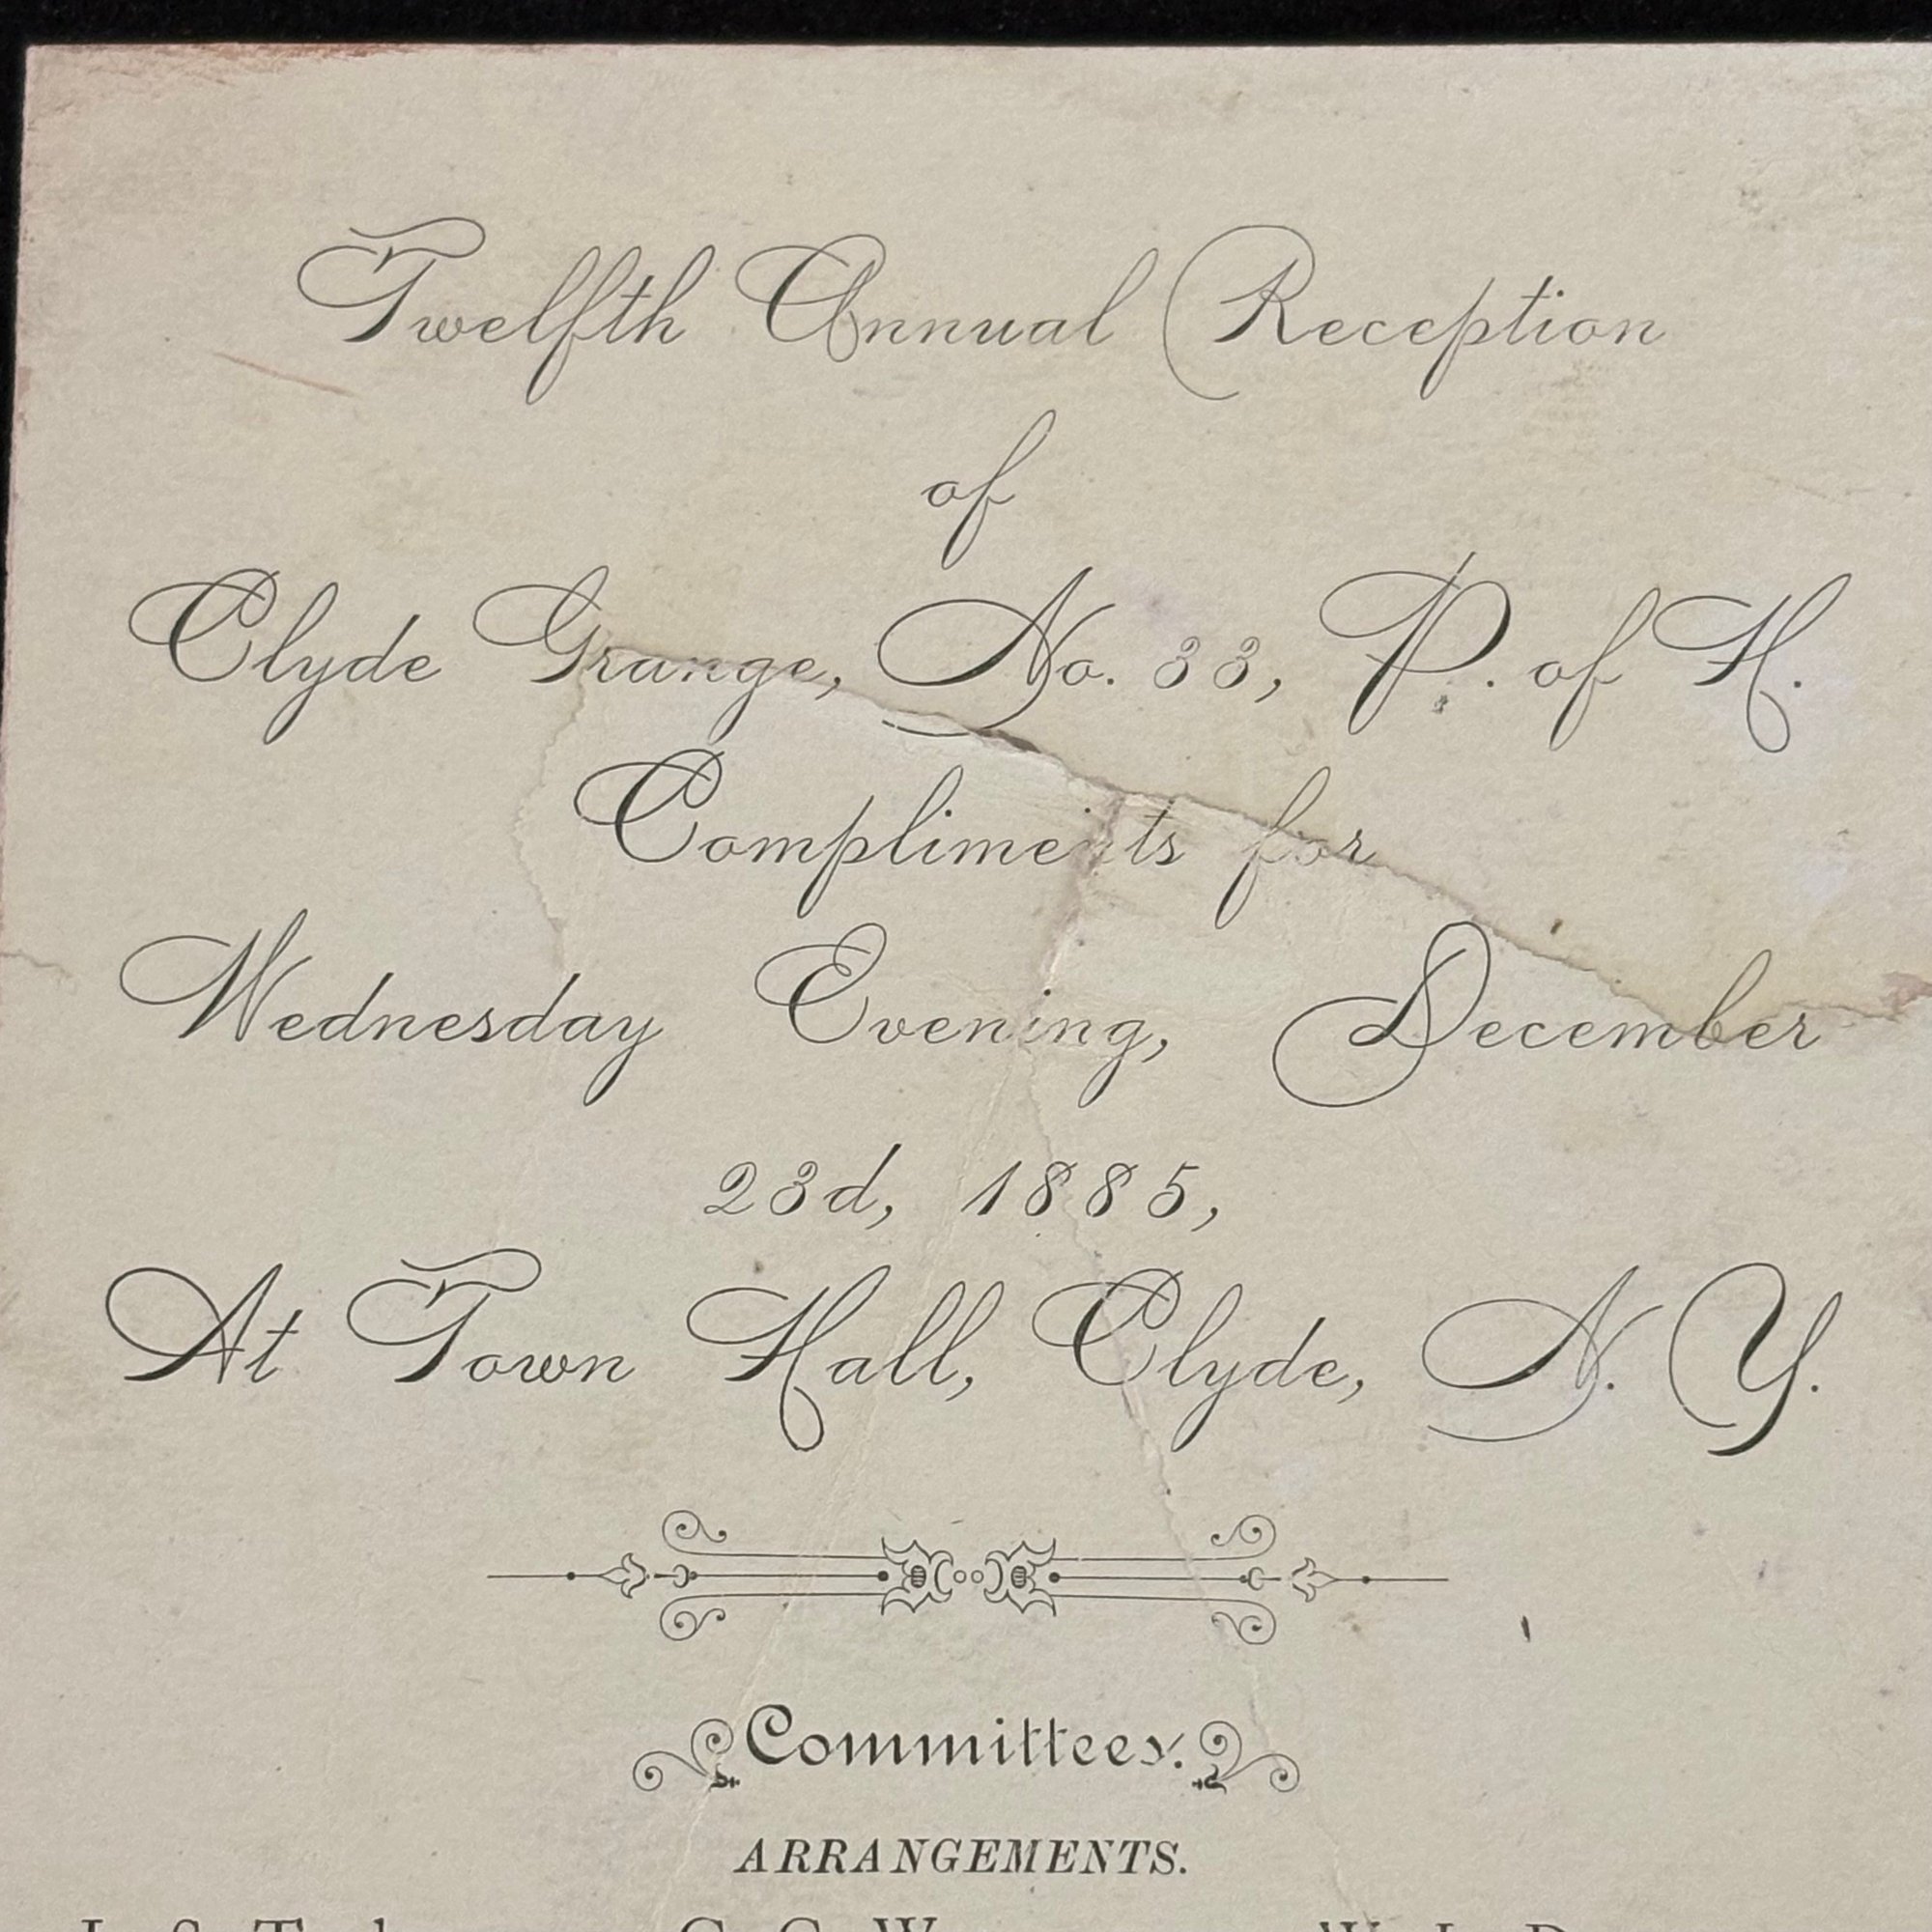 Twelfth Annual Reception
of
Clyde Grange, No. 33, P. of H.
Compliments for
Wednesday Evening, December
23d, 1885,
At Town Hall, Clyde, N. Y.
Committees.
ARRANGEMENTS.